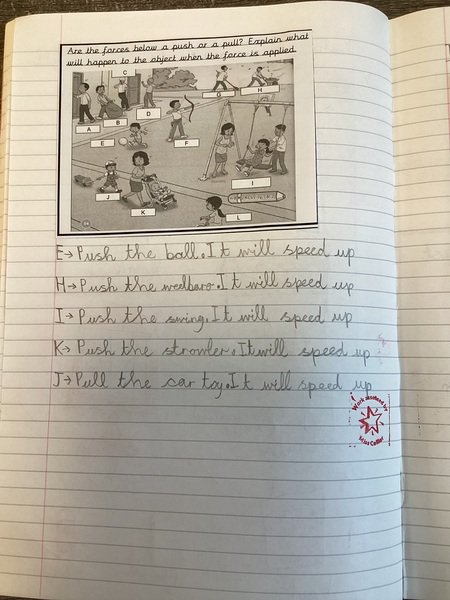 Are the forces below a push or a pull? Explain what
will happen to the object when the force is applied.
C
G
H
A
B
D
E
F
J
I
K
L
E→ Push the ball. It will speed up
H→ Push the weelbaro. It will speed up
I→ Push the swing. It will speed up
K→ Push the strowler. It will speed up
J→ Pull the car toy. It will speed up
Work assessed by
Miss Collier